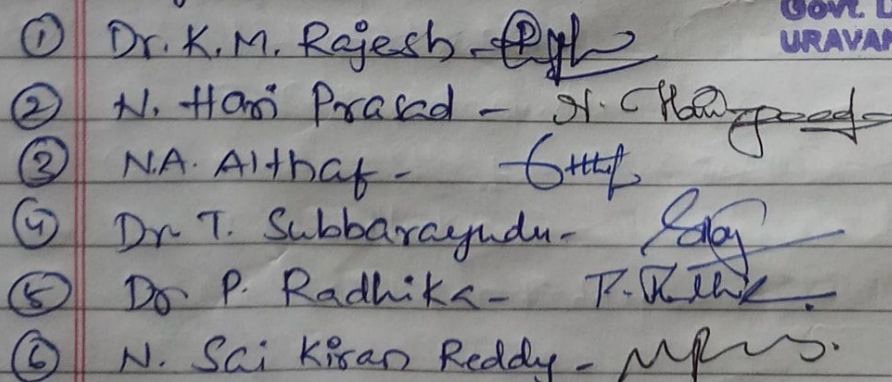 Govt. D
URAVA
① Dr. K. M. Rajesh -
② N. Hari Prasad - N. Hari
③ N.A. Althaf -
④ Dr T. Subbarayudu -
⑤ Dr P. Radhika - P.
⑥ N. Sai Kiran Reddy -